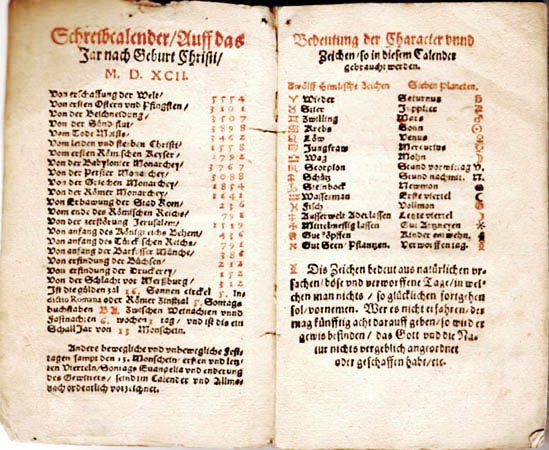 Schreibcalender/Auff das
Jar nach Geburt Christi/
M. D. XCII.
Von erschaffung der Welt/ 5554
Von ersten Ostern vnd Pfingsten/ 3101
Von der Beschneidung/ 3507
Von der Sündflut/
Vom Tode Mosis/
Vom leiden vnd sterben Christi/
Vom ersten Römischen Keyser/
Von der Babylonier Monarchey/ 3767
Von der Persier Monarchey/
Von der Griechen Monarchey/ 1854
Von der Römer Monarchey/ 1641
Von Erbawung der Stad Rom/
Vom ende des Römischen Reichs/ 791
Von der zerstörung Jerusalem/
Von anfang des Königreichs Behem/ 416
Von anfang des Türckischen Reichs/ 791
Von anfang der Barfusser Münche/ 386
Von erfindung der Büchsen/ 212
Von erfindung der Druckerey/ 152
Von der Schlacht vor
Ist die gülden zal 16. Sonnen circkel 5. In-
dictio Romana oder Römer Zinßzal 5. Sontags
buchstaben BA. Zwischen Weinachten vnnd
Fastnachten 6. wochen 3 tag/ vnd ist diß ein
SchaltJar von 13 Monschein.
Andere bewegliche vnd vnbewegliche Fest-
tagen sampt den 13. Monschein/ ersten vnd letz-
ten Vierteln/Sontags Euangelia vnd enderung
des Gewitters/ seind im Calender vnd Allma-
nach ordentlich verzeichnet.
Bedeutung der Character vnnd
Zeichen/so in diesem Calender
gebraucht werden.
Zwölff Himlische Zeichen Sieben Planeten.
♈ Wieder Saturnus ♄
♉ Stier Juppiter ♃
♊ Zwilling Mars ♂
♋ Krebs Sonn ☉
♌ Löw Venus ♀
♍ Jungfraw Mercurius ☿
♎ Wag Mohn ☽
♏ Scorpion Stund vormittag V.
♐ Schütz Stund nachmit. N.
♑ Steinbock Newmon
♒ Wasserman Erste viertel
♓ Fisch Vollmon
Ausserwelt Aderlassen Letzte viertel
Mittelmessig lassen Gut Artzneyen
Gut Köpffen Kinder entwehn.
Gut Seen/Pflantzen. Verworffen tag.
Dis Zeichen bedeut aus natürlichen vr-
sachen/ böse vnd verworffene Tage/in wel-
chen man nichts/ so glücklichen fortgehen
sol/vornemen. Wer es nicht erfahren/ der
mag künfftig acht darauff geben/so wird er
gewis befinden/ das Gott vnd die Na-
tur nichts vergeblich angeordnet
oder geschaffen habe/etc.